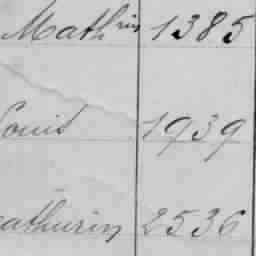 Mathrin 1385
Louis 1939
athurin 2536